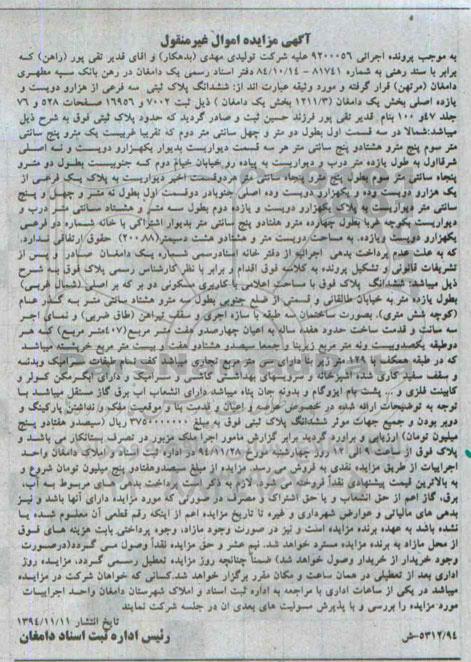 آگهی مزایده اموال غیرمنقول
به موجب پرونده اجرائی ۹۲۰۰۰۵۶ علیه شرکت تولیدی مهدی (بدهکار) و اقای قدیر تقی پور (راهن) که
برابر با سند رهنی به شماره ۸۱۷۴۱ - ۸۴/۱۰/۱۴ دفتر اسناد رسمی یک دامغان در رهن بانک سپه مطهری
دامغان (مرتهن) قرار گرفته و مورد وثیقه عبارت اند از: ششدانگ پلاک ثبتی سه فرعی از هزارو دویست و
یازده اصلی بخش یک دامغان (۱۲۱۱/۳ بخش یک دامغان) ذیل ثبت ۷۰۰۲ و ۱۶۹۵۶ صفحات ۵۲۸ و ۷۶
جلد ۴۷و ۱۰۰ بنام قدیر تقی پور فرزند حسین ثبت و صادر گردید که حدود پلاک ثبتی فوق به شرح ذیل
میباشد:شمالا در سه قسمت اول بطول دو متر و چهل سانتی متر دوم که تقریبا غربیست یک مترو پنج سانتی
متر سوم پنج مترو هشتادو پنج سانتی متر هر سه قسمت دیواریست بدیوار یکهزارو دویست و نه اصلی
شرقااول به طول یازده متر درب و دیواریست به پیاده رو خیابان خیام دوم که جنوبیست بطول دو مترو
پنجاه سانتی متر سوم بطول پنج مترو پنجاه سانتی متر هردوقسمت اخیر دیواریست به پلاک یک فرعی از
یک هزارو دویست وده و یکهزارو دویست وده اصلی جنوبادر دوقسمت اول بطول نه متر و چهل و پنج
سانتی متر دیواریست به پلاک یکهزارو دویست و یازده دوم بطول سه متر و هشتاد سانتی متر درب و
دیواریست بکوچه غربا بطول چهارده مترو هفتادو پنج سانتی متر بدیوار اشتراکی با خانه شماره دو فرعی
یکهزارو دویست ویازده. به مساحت دویست متر و هشتادو هشت دسیمتر(۲۰۰.۸۸) حقوق ارتفاقی ندارد.
که به علت عدم پرداخت بدهی اجرائیه از دفتر خانه اسنادرسمی شماره یک دامغان صادر و پس از
تشریفات قانونی و تشکیل پرونده به کلاسه فوق اقدام و برابر با نظر کارشناس رسمی پلاک فوق به شرح
ذیل میباشد: ششدانگ پلاک فوق با مساحت اعلامی با کاربری مسکونی دو بر که بر اصلی (شمال غربی)
بطول یازده متر به خیابان طالقانی و قسمتی از ضلع جنوبی بطول سه مترو هشتاد سانتی متر به گذر عام
(کوچه شش متری). بصورت ساختمان سه طبقه با سازه اجری و سقف تیراهن (طاق ضربی) و نمای اجر
سه سانت و قدمت ساخت حدود هفده ساله به اعیان چهارصدو هفت متر مربع(۴۰۷متر مربع) که هر
دوطبقه یکصدوبیست ونه متر مربع زیربنا و جمعا سیصدو هشتادو هفت و بیست متر مربع خرپشته میباشد
توجه به توضیحات ارائه شده در خصوص عرصه و اعیان و قدمت بنا و موقعیت ملک و نداشتن پارکینگ و
دوبر بودن و جمیع جهات موثر ششدانگ پلاک ثبتی فوق به مبلغ ۳۷۵۰۰۰۰۰۰۰ ریال (سیصدو هفتادو پنج
میلیون تومان) ارزیابی و براورد گردید برابر گزارش مامور اجرا ملک مزبور در تصرف بستانکار می باشد و
پلاک فوق از ساعت ۹ الی ۱۲ روز چهارشنبه مورخ ۹۴/۱۱/۲۸ در اداره ثبت اسناد و املاک دامغان واحد
اجراییات از طریق مزایده نقدی به فروش می رسد. مزایده از مبلغ سیصدوهفتادو پنج میلیون تومان شروع و
به بالاترین قیمت پیشنهادی نقداً فروخته می شود. لازم به ذکر است پرداخت بدهی های مربوط به آب،
برق، گاز اعم از حق انشعاب و یا حق اشتراک و مصرف در صورتی که مورد مزایده دارای آنها باشد و نیز
بدهی های مالیاتی و عوارض شهرداری و غیره تا تاریخ مزایده اعم از اینکه رقم قطعی آن معلوم شده یا
نشده باشد به عهده برنده مزایده است و نیز در صورت وجود مازاد، وجوه پرداختی بابت هزینه های فوق
از محل مازاد به برنده مزایده مسترد خواهد شد. نیم عشر و حق مزایده نقداً وصول می گردد(درصورت
وجود خریدار از خریدار وصول خواهد شد) ضمناً چنانچه روز مزایده تعطیل رسمی گردد، مزایده روز
اداری بعد از تعطیلی در همان ساعت و مکان مقرر برگزار خواهد شد.کسانی که خواهان شرکت در مزایده
میباشد در یکی از ساعات اداری با مراجعه به اداره ثبت اسناد و املاک شهرستان دامغان واحد اجراییات
مورد مزایده را بررسی و با پذیرش مسولیت های بعدی ان در جلسه شرکت نمایند
تاریخ انتشار ۱۳۹۴/۱۱/۱۱
رئیس اداره ثبت اسناد دامغان
۵۳۱۲/۹۴-ش